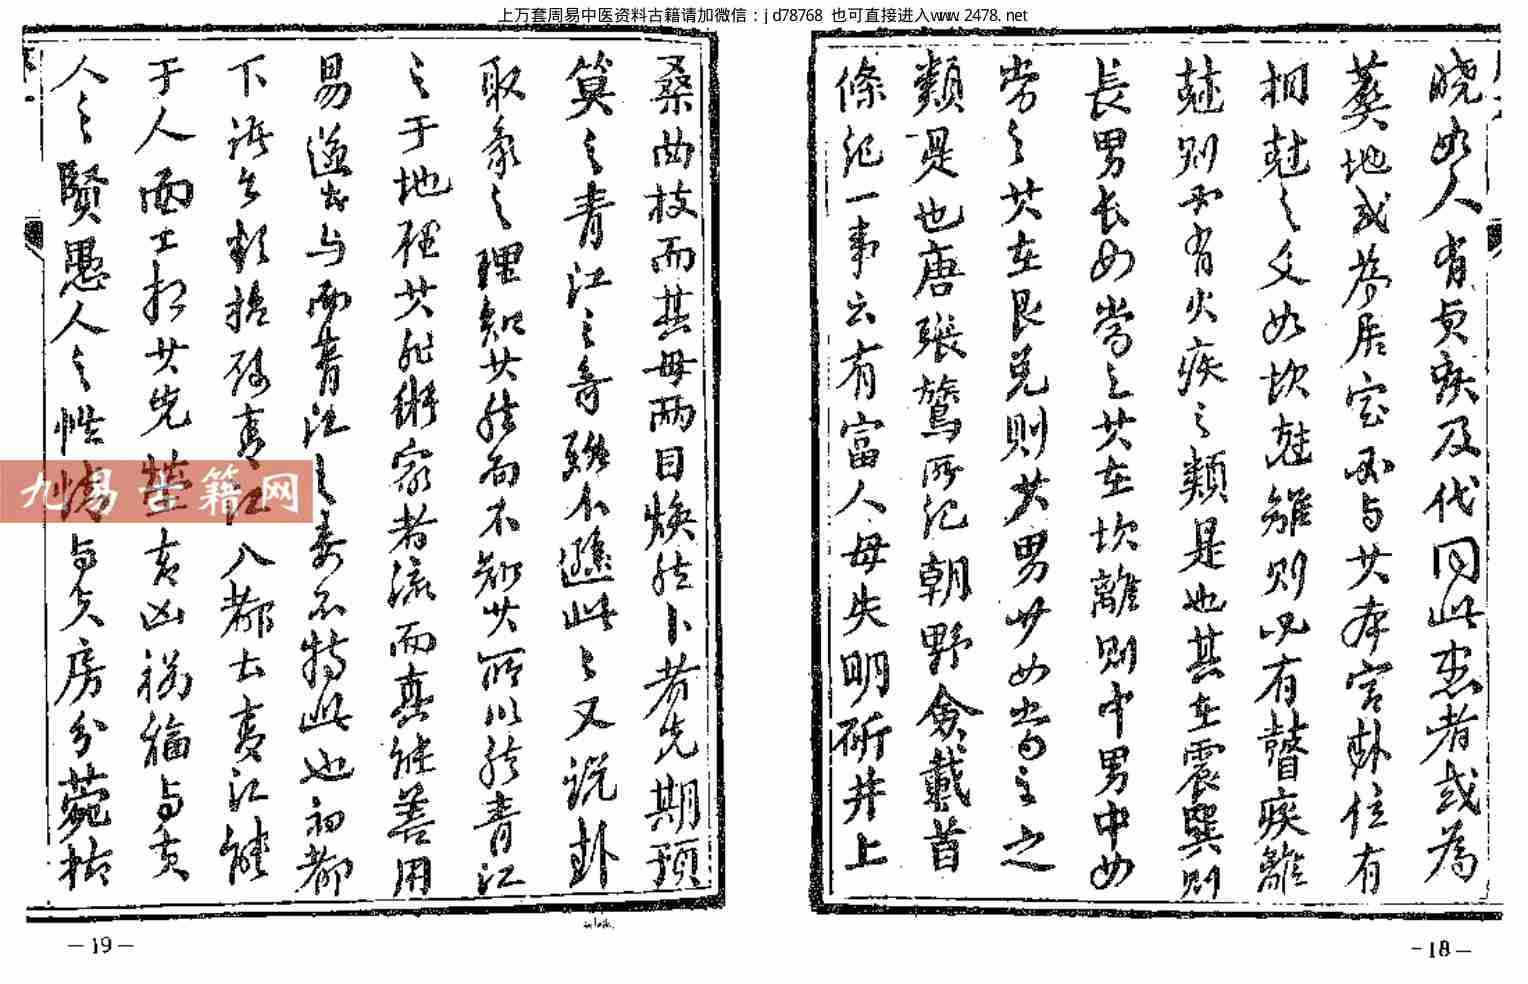 上万套周易中医资料古籍请加微信：jd78768 也可直接进入www.2478.net
晓如人有贞疾及代同此患者或為
葬地或为居室不与其本宫卦位有
相尅之父如坎尅離则只有瞽疾離
尅则有火疾之類是也其在震巽则
長男长女当之其在坎離则中男中女
当之其在艮兑则其男少女当之之
類是也唐張鷟所记朝野佥載首
條记一事云有富人母失明斫井上
桑曲枝而其母两目焕然卜者先期预
算之青江之奇雖不遜此此又说卦
取象之理知其然而不知其所以然青江
之于地理其能術家者流而真能善用
易道与而青江之妻不特此也初都
下八都去青江能
于人面上扣其先吉凶禍福与其
人之賢愚人之性情与夫房分菀枯
九易古籍网
-18-
-19-